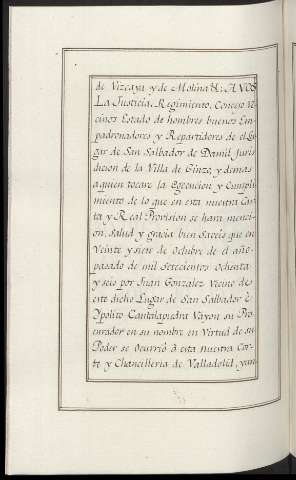 de Vizcaya y de Molina &c. A VOS
La Justicia, Regimiento, Concejo Ve
cinos Estado de hombres buenos Em
padronadores y Repartidores de el Lu
gar de San Salbador de Damil Juris
dicion de la Villa de Ginzo, y demas
a quien tocare la Egecucion y Cumpli
miento de lo que en esta nuestra Car
ta y Real Provision se hara menci
on, Salud y gracia bien Saveis que en
Veinte y siete de Octubre de el año
pasado de mil Setecientos Ochenta
y seis por Juan Gonzalez Vecino de
este dicho Lugar de San Salbador è
Ypolito Cantalapiedra Vayon su Pro
curador en su nombre en Virtud de su
Poder se Ocurriò à esta nuestra Cor
te y Chancilleria de Valladolid, y an